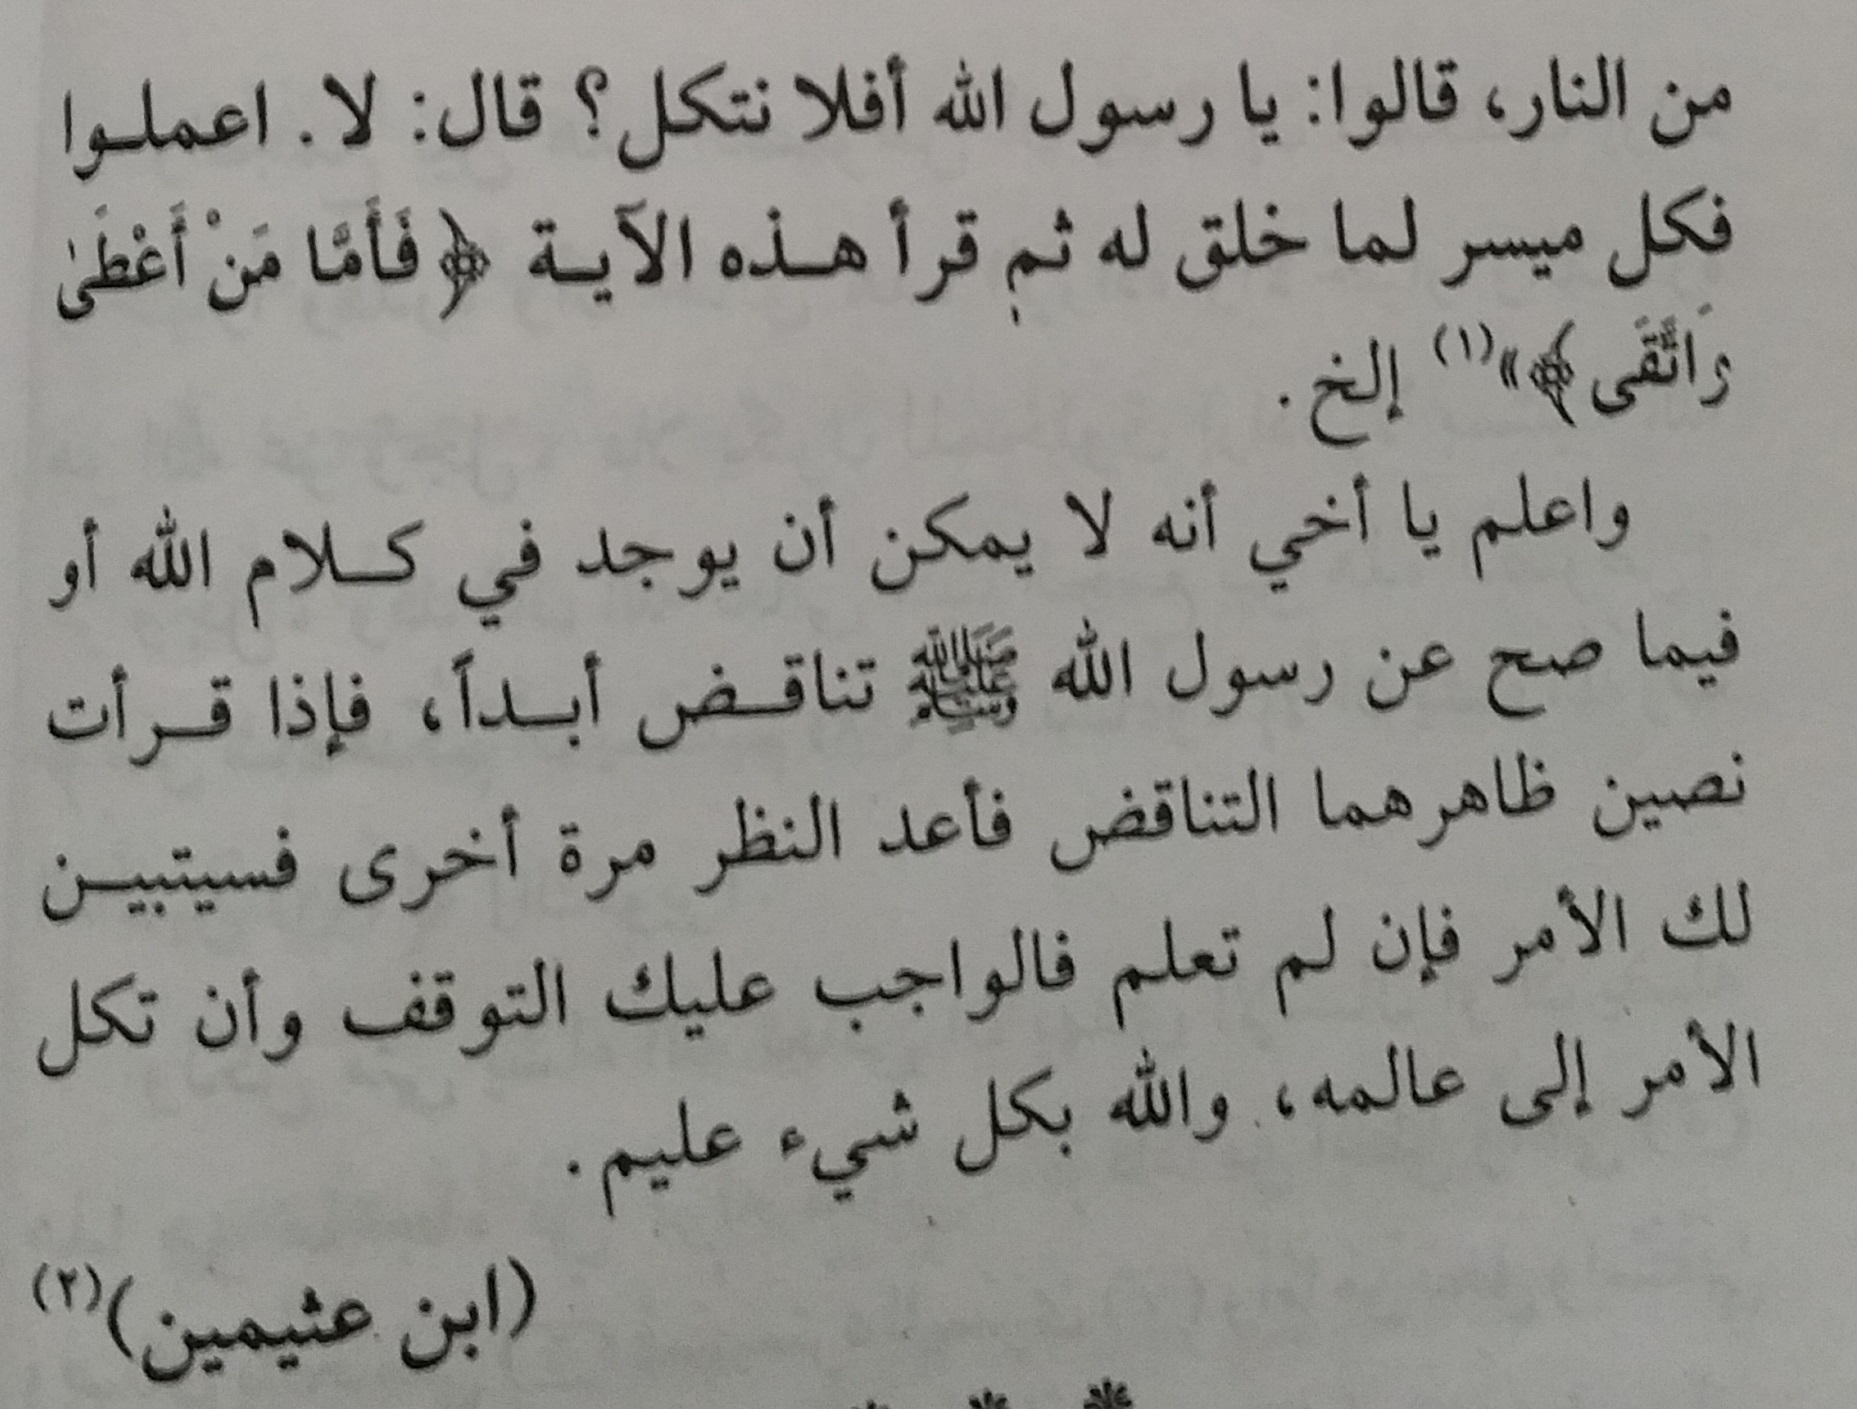 من النار، قالوا: يا رسول الله أفلا نتكل؟ قال: لا. اعملـوا
فكل ميسر لما خلق له ثم قرأ هـذه الآيـة ﴿فَأَمَّا مَنْ أَعْطَىٰ
وَاتَّقَى﴾»(١) إلخ.
واعلم يا أخي أنه لا يمكن أن يوجد في كـلام الله أو
فيما صح عن رسول الله ﷺ تناقـض أبـداً، فإذا قـرأت
نصين ظاهرهما التناقض فأعد النظر مرة أخرى فسيتبيـن
لك الأمر فإن لم تعلم فالواجب عليك التوقف وأن تكل
الأمر إلى عالمه، والله بكل شيء عليم.
(ابن عثيمين)(٢)